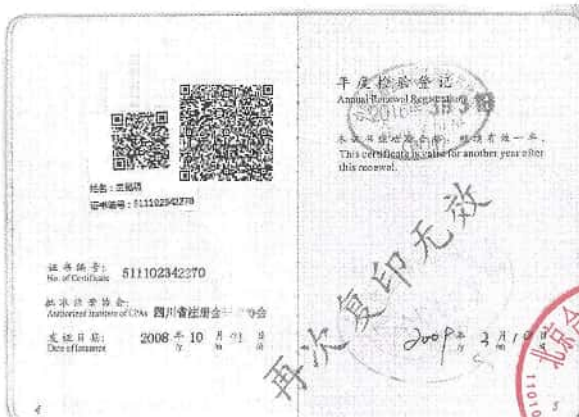 姓名：
证书编号：511102342270
证书编号：
No. of Certificate
511102342270
批准注册协会：
Authorized Institute of CPAs
四川省注册会 协会
发证日期：
Date of Issuance
2008 年 10 月 日
4
年度检验登记
Annual Renewal Registration
本证书经检验合格，继续有效一年。
This certificate is valid for another year after
this renewal.
再次复印无效
2009 年 2 月 10 日
北京会
11010
5